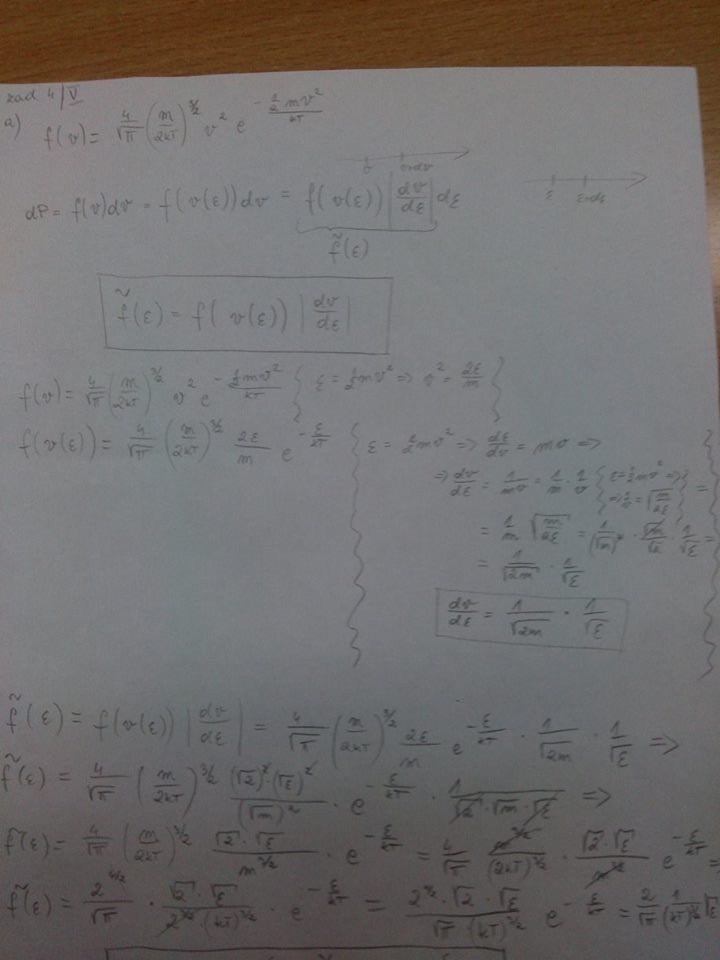 zad. 4/V
a) f(v) = 4/√π (m/2kT)^3/2 v² e^(-½mv²/kT)
v v+dv
ε ε+dε
dP = f(v)dv = f(v(ε))dv = f(v(ε)) |dv/dε| dε
f̃(ε)
f̃(ε) = f(v(ε)) |dv/dε|
f(v) = 4/√π (m/2kT)^3/2 v² e^(-½mv²/kT) { ε = ½mv² => v² = 2ε/m }
f(v(ε)) = 4/√π (m/2kT)^3/2 2ε/m e^(-ε/kT)
ε = ½mv² => dε/dv = mv =>
=> dv/dε = 1/mv = 1/m · 1/v { ε = ½mv² => => 1/v = √(m/2ε) } =
= 1/m √(m/2ε) = 1/(√m)² · √m/√2 · 1/√ε =
= 1/√2m · 1/√ε
dv/dε = 1/√2m · 1/√ε
f̃(ε) = f(v(ε)) |dv/dε| = 4/√π (m/2kT)^3/2 2ε/m e^(-ε/kT) · 1/√2m · 1/√ε =>
f̃(ε) = 4/√π (m/2kT)^3/2 (√2)²·(√ε)²/(√m)² · e^(-ε/kT) · 1/(√2·√m·√ε) =>
f̃(ε) = 4/√π (m/2kT)^3/2 √2·√ε/m^3/2 · e^(-ε/kT) = 4/√π m^3/2/(2kT)^3/2 · √2·√ε/m^3/2 e^(-ε/kT) =
f̃(ε) = 2^4/2/√π · √2·√ε/(2^3/2·(kT)^3/2) · e^(-ε/kT) = 2^1/2·√2·√ε/(√π·(kT)^3/2) e^(-ε/kT) = 2/√π 1/(kT)^3/2 √ε